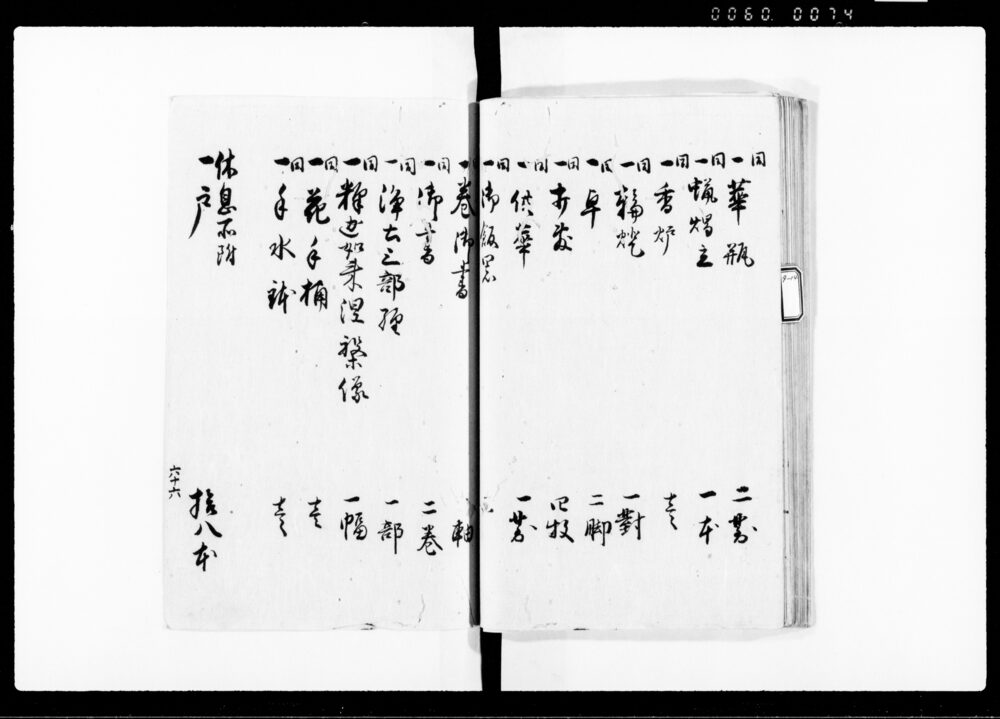 0060 0074
同
一華瓶 二對
同
一蝋燭立 一本
同
一香炉 壱ツ
同
一輪燈 一對
同
一卓 二脚
同
一打敷 四枚
同
一供華 一對
同
一御飯器
同
一巻御書 軸
同
一御書 二巻
同
一浄土三部経 一部
同
一釋迦如来涅槃像 一幅
同
一花手桶 壱ツ
同
一手水鉢 壱ツ
休息所附
一戸 拾八本
六十六